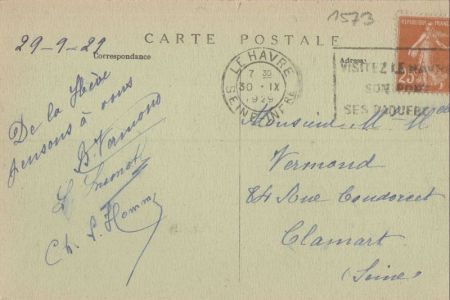 1573
29-9-29
CARTE POSTALE
Correspondance
Adresse
LE HAVRE
7 30
30 - IX
1929
SEINE INFRE
VISITEZ LE HAVRE
SON PORT
SES PAQUEBOTS
De la Hève
pensons à vous
B. Vermond
Ch. L. Hommy
Monsieur M
Vermond
84 Rue Condorcet
Clamart
(Seine)